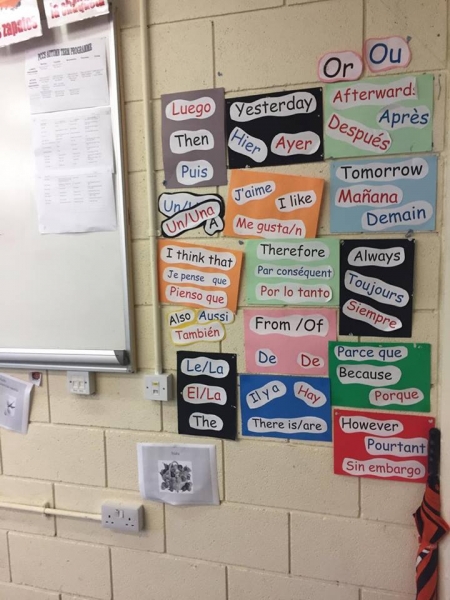 la chaqueta
zapatos
Or
Ou
Luego
Then
Puis
Yesterday
Hier
Ayer
Afterward:
Après
Después
Un/Una
A
J'aime
I like
Me gusta/n
Tomorrow
Mañana
Demain
I think that
Je pense que
Pienso que
Therefore
Par conséquent
Por lo tanto
Always
Toujours
Siempre
Also
Aussi
También
From /Of
De
De
Le/La
El/La
The
Il y a
Hay
There is/are
Parce que
Because
Porque
However
Pourtant
Sin embargo